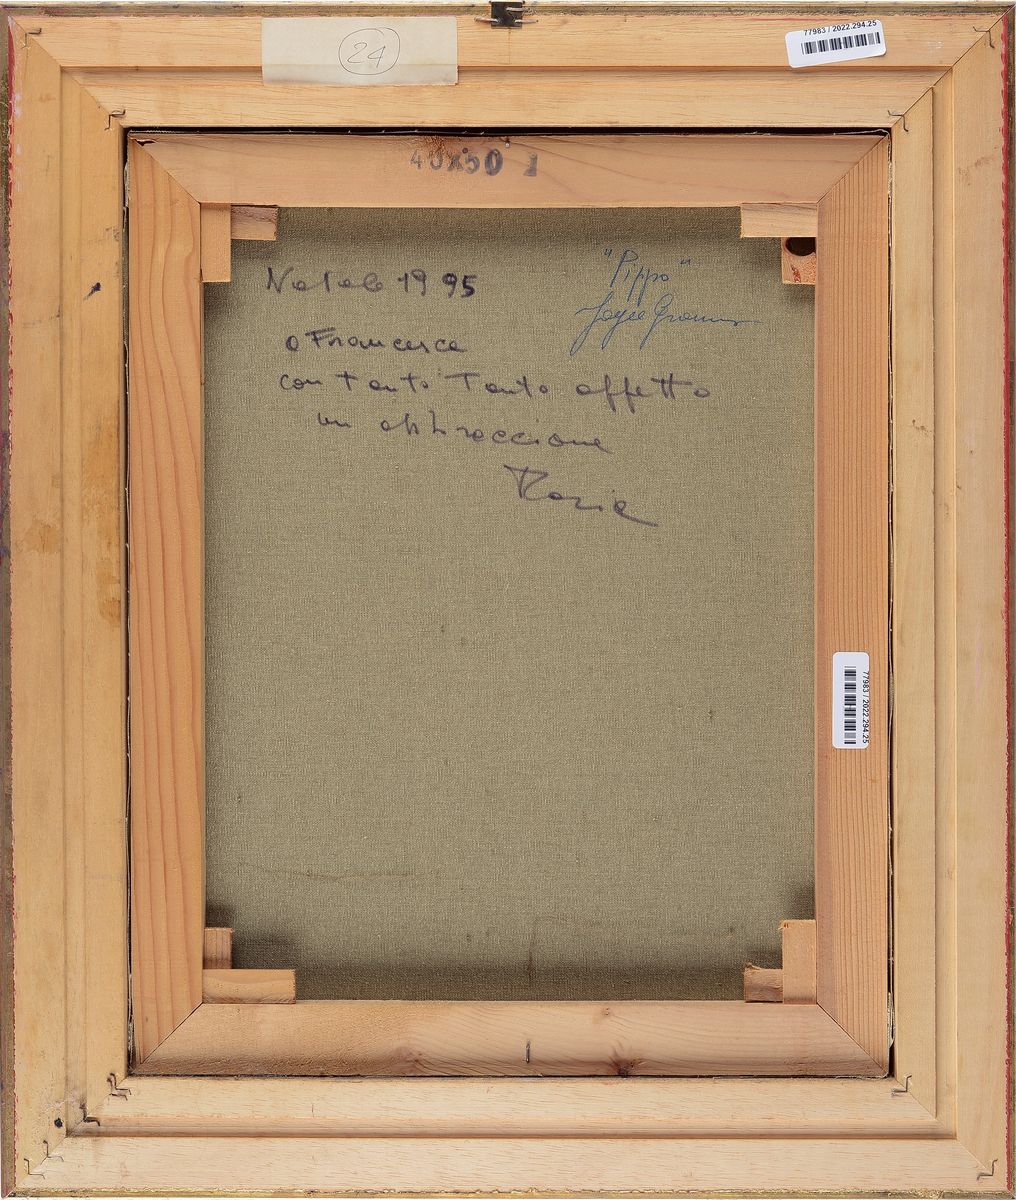 24
77983 / 2022.294.25
40x50 1
Natale 1995
"Pippo"
Joyce
a Francesca
con tanto Tanto affetto
un abbraccione
77983 / 2022.294.25